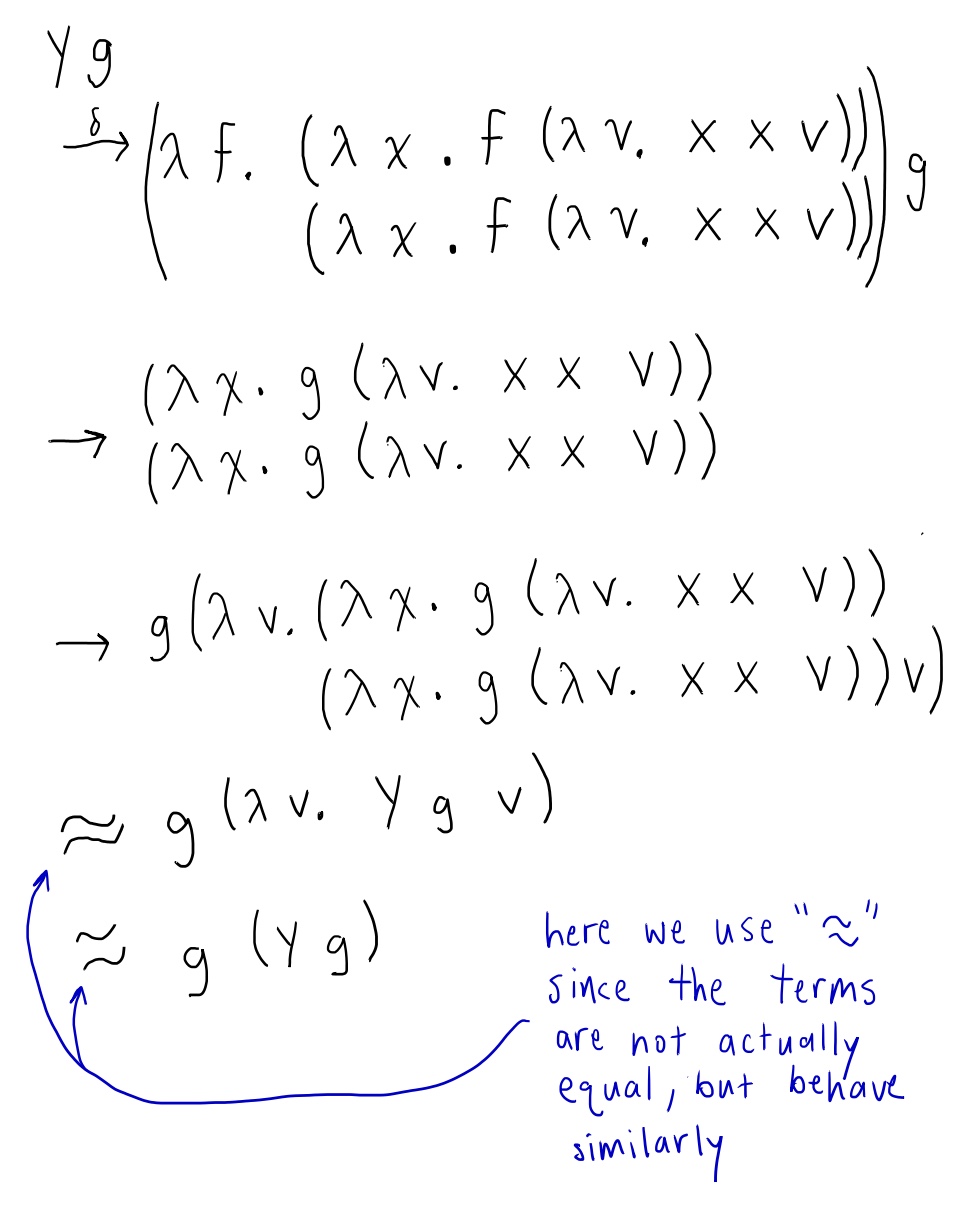 Y g
δ→ (λ f. (λ x . f (λ v. x x v))
(λ x . f (λ v. x x v))) g
(λ x. g (λ v. x x v))
→ (λ x. g (λ v. x x v))
→ g (λ v. (λ x. g (λ v. x x v))
(λ x. g (λ v. x x v)) v)
≈ g (λ v. Y g v)
≈ g (Y g)
here we use "≈"
since the terms
are not actually
equal, but behave
similarly